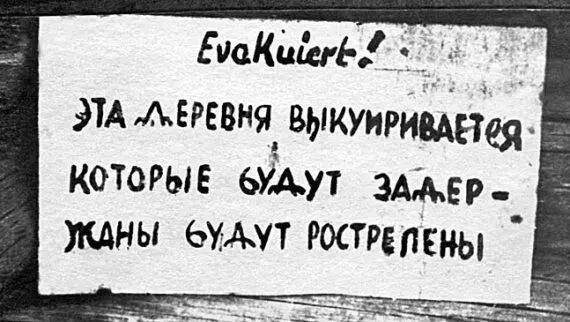 Evakuiert!
ЭТА ДЕРЕВНЯ ВЫКУИРИВАЕТСЯ
КОТОРЫЕ БУДУТ ЗАДЕР-
ЖАНЫ БУДУТ РОСТРЕЛЕНЫ